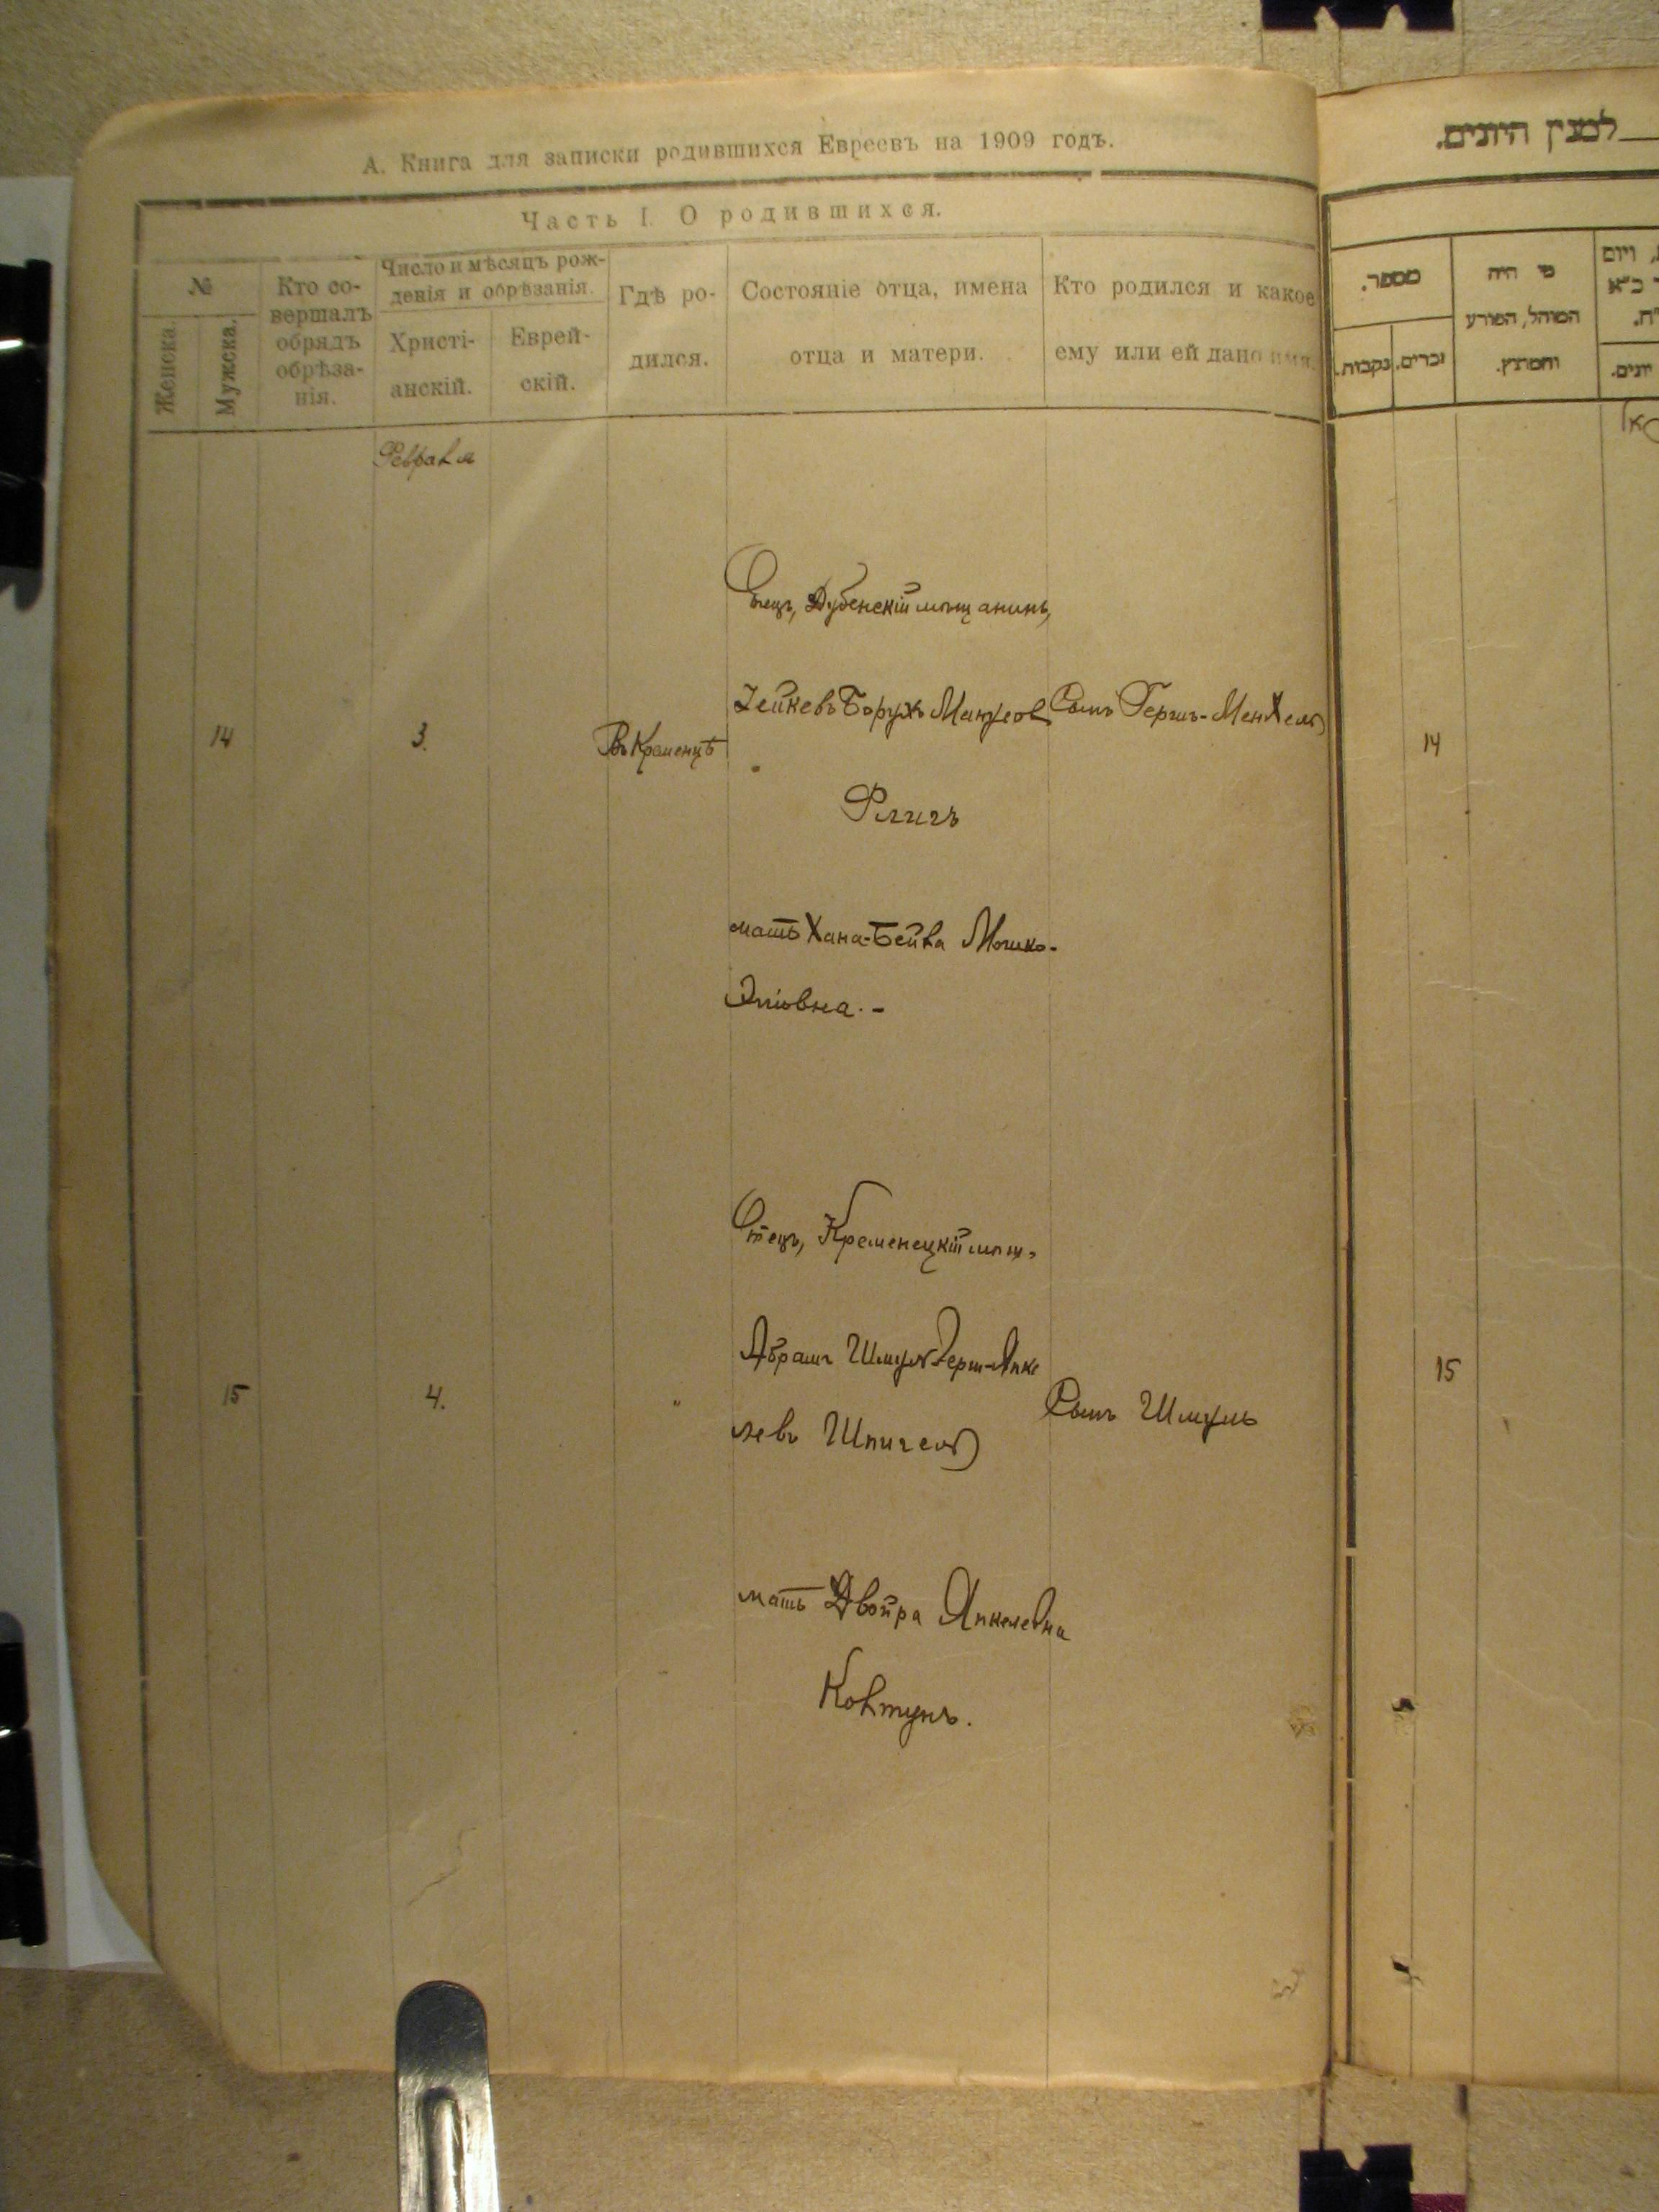 А. Книга для записки родившихся Евреевъ на 1909 годъ.
Часть I. О родившихся.
№
Женска.
Мужска.
Кто со-
вершалъ
обрядъ
обрѣза-
нія.
Число и мѣсяцъ рож-
денія и обрѣзанія.
Христі-
анскій.
Еврей-
скій.
Гдѣ ро-
дился.
Состояніе отца, имена
отца и матери.
Кто родился и какое
ему или ей дано имя.
Февраля
14
3.
Въ Кременцѣ
Отецъ, Дубенскій мѣщанинъ,
Борухъ
Флигъ
мать Хана-Бейла Мошко-
Сынъ Гершъ-Мендель
15
4.
"
Отецъ, Кременецкій мѣщ.
Абрамъ Шмуль Герш-Янке
левъ Шпигель
мать Двойра Янкелевна
Ковтунъ.
Сынъ Шмуль
למנין היונים.
מספר.
זכרים.
נקבות.
מי היה
המוהל, הפורע
והמוצץ.
ויום
יונים.
14
15